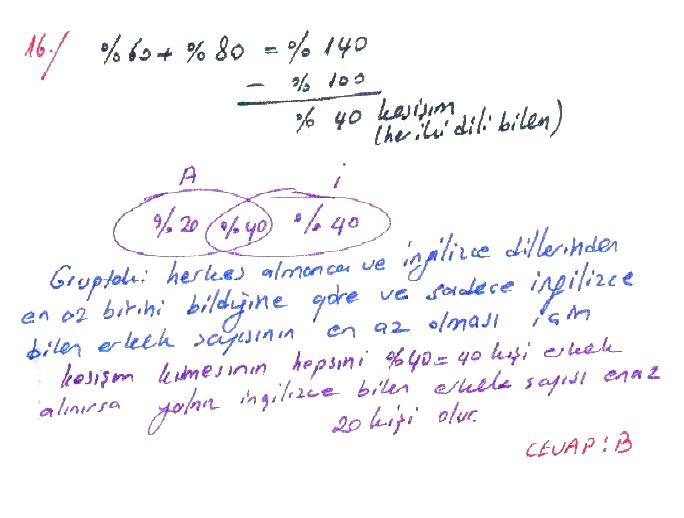 16./ %60 + %80 = %140
- %100
%40 kesişim
(her iki dili bilen)
A İ
%20 %40 %40
Gruptaki herkes almanca ve ingilizce dillerinden
en az birini bildiğine göre ve sadece ingilizce
bilen erkek sayısının en az olması için
kesişim kümesinin hepsini %40 = 40 kişi erkek
alınırsa yalnız ingilizce bilen erkek sayısı en az
20 kişi olur.
CEVAP: B